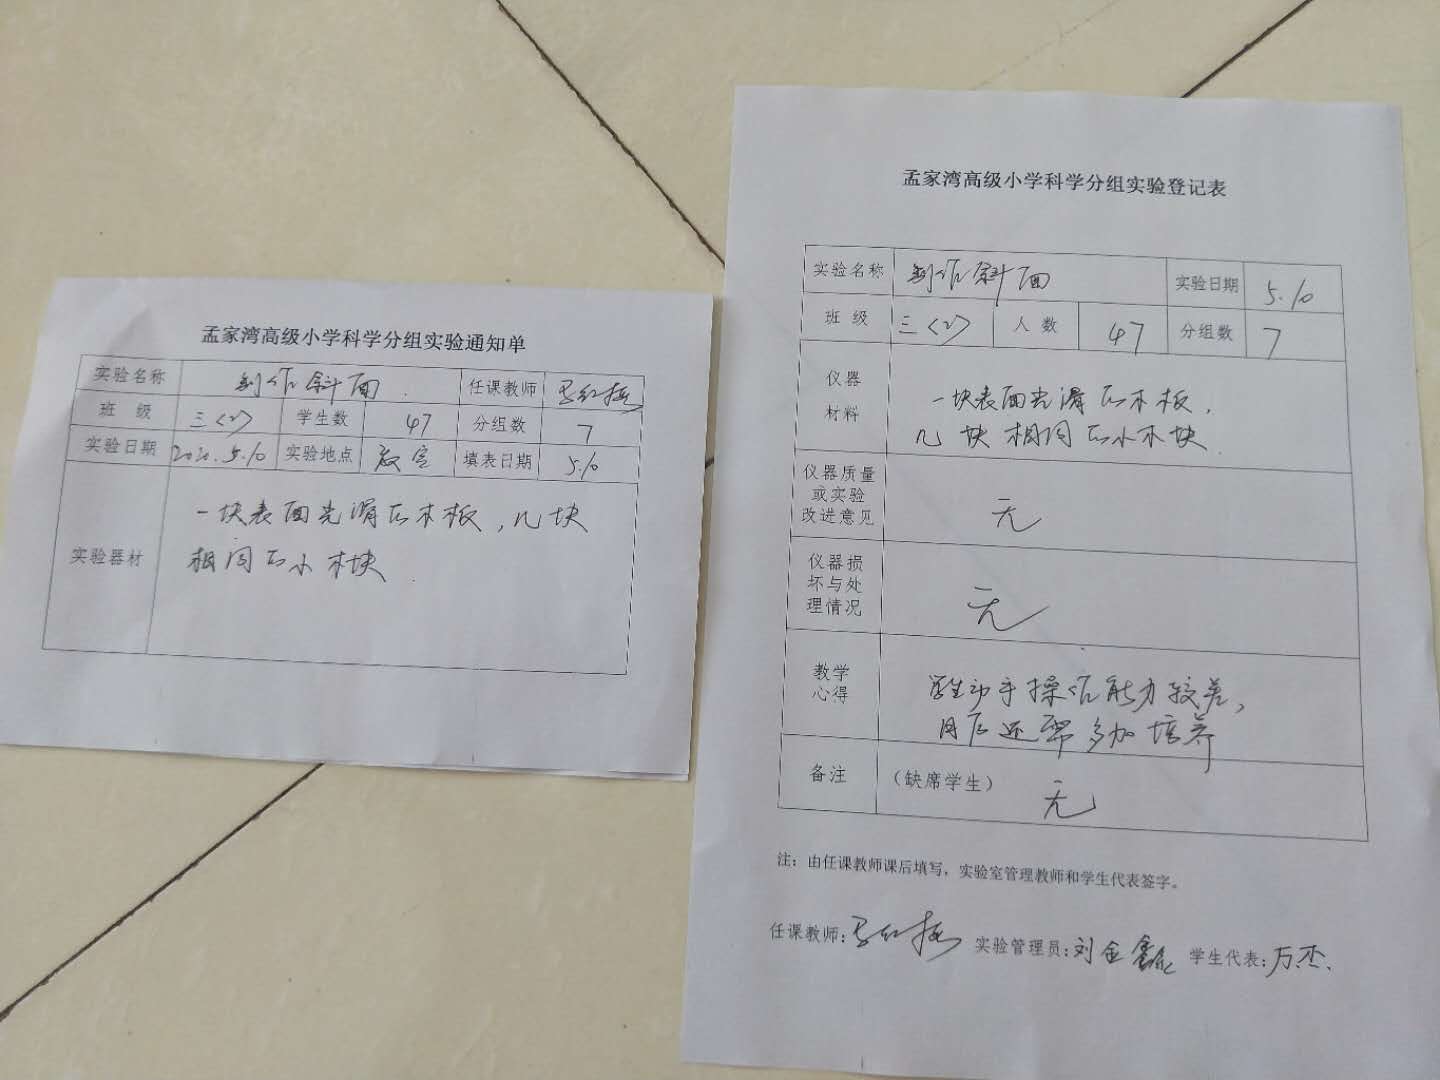 孟家湾高级小学科学分组实验通知单
实验名称 制作斜面 任课教师
班 级 三(2) 学生数 47 分组数 7
实验日期 5.10 实验地点 教室 填表日期 5.10
实验器材
一块表面光滑的木板,几块
相同的小木块
孟家湾高级小学科学分组实验登记表
实验名称 制作斜面 实验日期 5.10
班 级 三(2) 人 数 47 分组数 7
仪器
材料
一块表面光滑的木板,
几块相同的小木块
仪器质量
或实验
改进意见
无
仪器损
坏与处
理情况
无
教学
心得
学生动手操作能力较差,
日后还需多加培养
备注 (缺席学生) 无
注:由任课教师课后填写,实验室管理教师和学生代表签字。
任课教师: 实验管理员:刘金鑫 学生代表:万杰